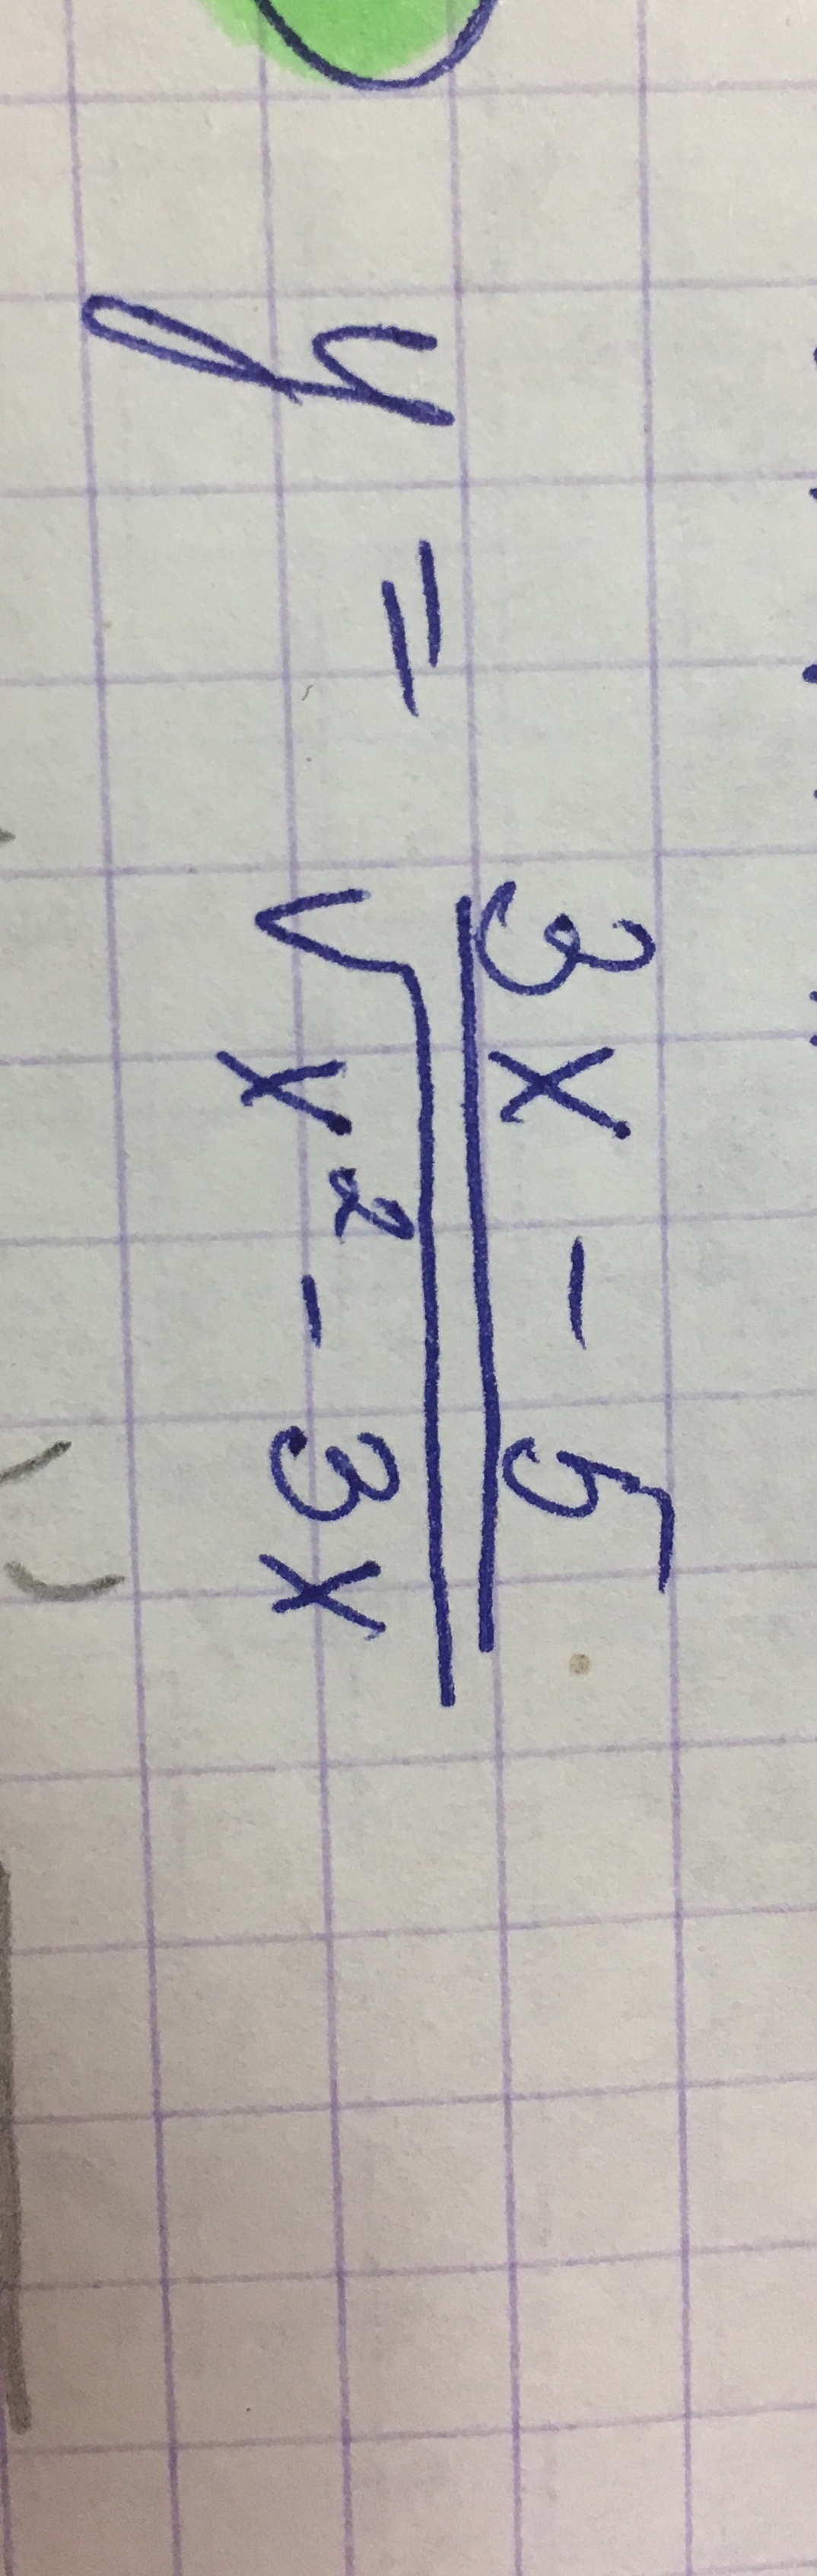 y = 3x - 5 / √x² - 3x